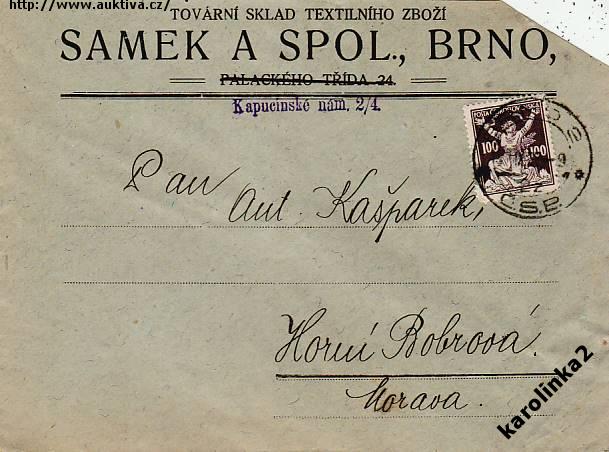 http://www.auktiva.cz/
TOVÁRNÍ SKLAD TEXTILNÍHO ZBOŽÍ
SAMEK A SPOL., BRNO,
PALACKÉHO TŘÍDA 24.
Kapucinské nám. 2/4.
POSTA
100 100
Č.S.P.
Pan
Ant. Kašparek,
Horní Bobrová.
Morava.
karolinka2